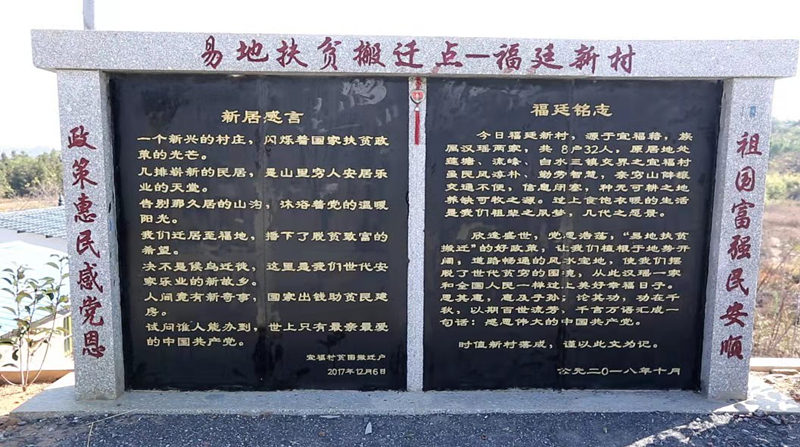 易地扶贫搬迁点—福廷新村
政策惠民感党恩
新居感言
一个新兴的村庄，闪烁着国家扶贫政
策的光芒。
几排崭新的民居，是山里穷人安居乐
业的天堂。
告别那久居的山沟，沐浴着党的温暖
阳光。
我们迁居至福地，播下了脱贫致富的
希望。
决不是候鸟迁徙，这里是我们世代安
家乐业的新故乡。
人间竟有新奇事，国家出钱助贫民建
房。
试问谁人能办到，世上只有最亲最爱
的中国共产党。
宜福村贫困搬迁户
2017年12月6日
福廷铭志
今日福廷新村，源于宜福籍，族
属汉瑶两家，共8户32人，原居地处
莲塘、流峰、白水三镇交界之宜福村
虽民风淳朴、勤劳智慧，奈穷山阵缧
交通不便，信息闭塞，种无可耕之地
养缺可牧之源。过上食饱衣暖的生活
是我们祖辈之夙梦，几代之愿景。
欣逢盛世，党恩浩荡，“易地扶贫
搬迁”的好政策，让我们植根于地势开
阔，道路畅通的风水宝地，使我们摆
脱了世代贫穷的困境，从此汉瑶一家
和全国人民一样过上美好幸福日子。
思其恩，惠及子孙；论其功，功在千
秋，以期百世流芳，千言万语汇成一
句话：感恩伟大的中国共产党。
时值新村落成，谨以此文为记。
公元二0一八年十月
祖国富强民安顺